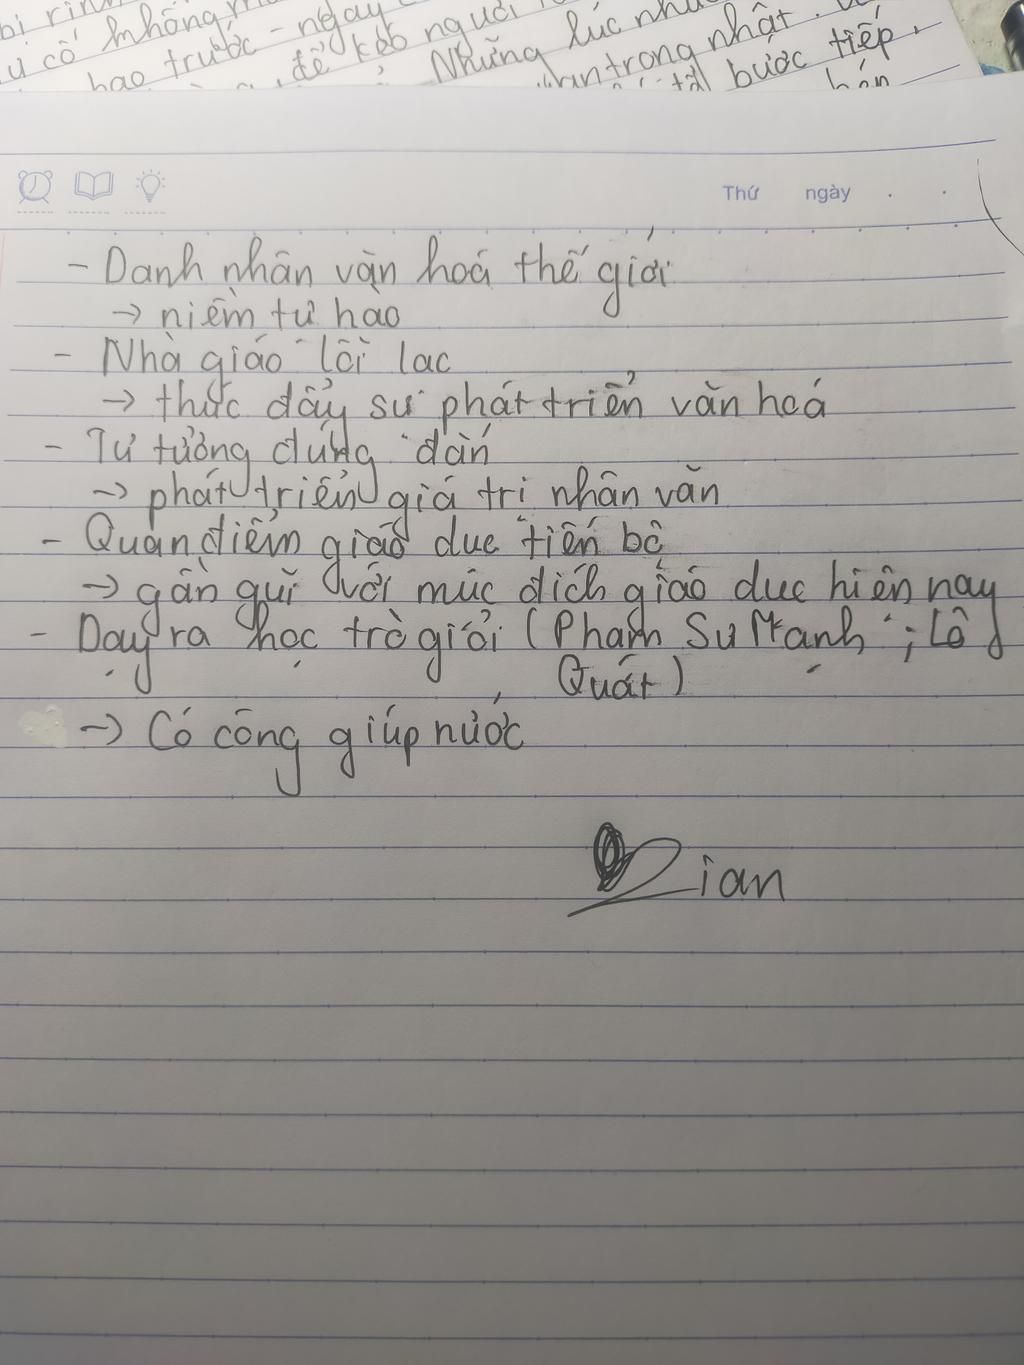 bị rình
cố khống
hao trước - ngay
, để kéo người
Những lúc
trong nhật.
bước tiếp,
Thứ ngày . .
- Danh nhân văn hoá thế giới
→ niềm tự hào
- Nhà giáo lỗi lạc
→ thúc đẩy sự phát triển văn hoá
- Tư tưởng đúng đắn
→ phát triển giá trị nhân văn
- Quan điểm giáo dục tiến bộ
→ gần gũi với mục đích giáo dục hiện nay
- Dạy ra học trò giỏi (Phạm Sư Mạnh ; Lê
Quát)
→ Có công giúp nước
Lian